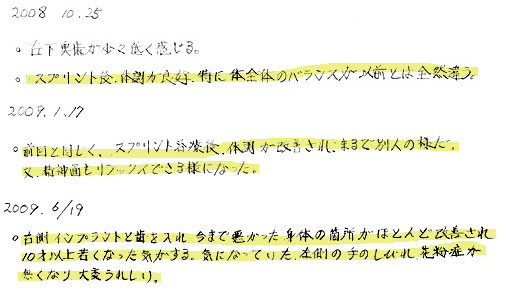 2008 10.25
。右下奥歯が少々低く感じる。
。スプリント後、体調が良好、特に体全体のバランスが以前とは全然違う。
2009.1.17
。前回と同じく、スプリント治療後、体調が改善され、まるで別人の様だ。
又、精神面もリラックスできる様になった。
2009.6/19
。右側インプラントと歯を入れ今まで悪かった身体の箇所がほとんど改善され
10才以上若くなった気がする。気になっていた、左側の手のしびれ、花粉症が
無くなり大変うれしい。